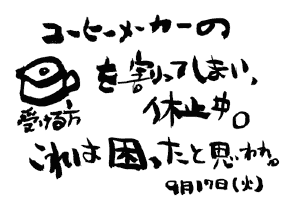 コーヒーメーカーの
を割ってしまい、
受ける方
休止中。
これは困ったと思われ。
9月17日(火)